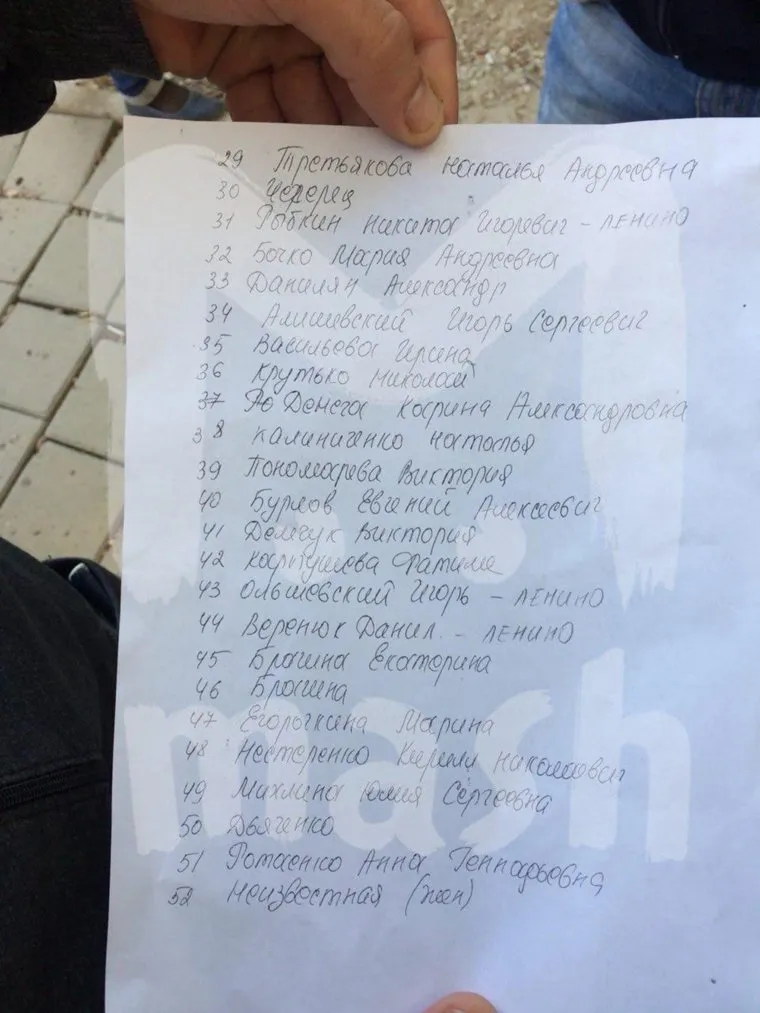 29 Третьякова Наталья Андреевна
30 Черерец
31 Рыбкин Никита Игоревич - ЛЕНИНО
32 Бочко Мария Андреевна
33 Данилян Александр
34 Алишевский Игорь Сергеевич
35 Васильева Ирина
36 Крутько Николай
37 Демега Карина Александровна
38 Калиниченко Наталья
39 Пономарева Виктория
40 Бурлов Евгений Алексеевич
41 Демчук Виктория
42 Карпушева Фатиме
43 Ольшевский Игорь - ЛЕНИНО
44 Веренюк Данил. - ЛЕНИНО
45 Брагина Екатерина
46
47 Егорычкина Марина
48 Нестеренко Кирилл Николаевич
49 Михлина Юлия Сергеевна
50 Дьяченко
51 Анна Геннадьевна
52 Неизвестная (жен)
mash